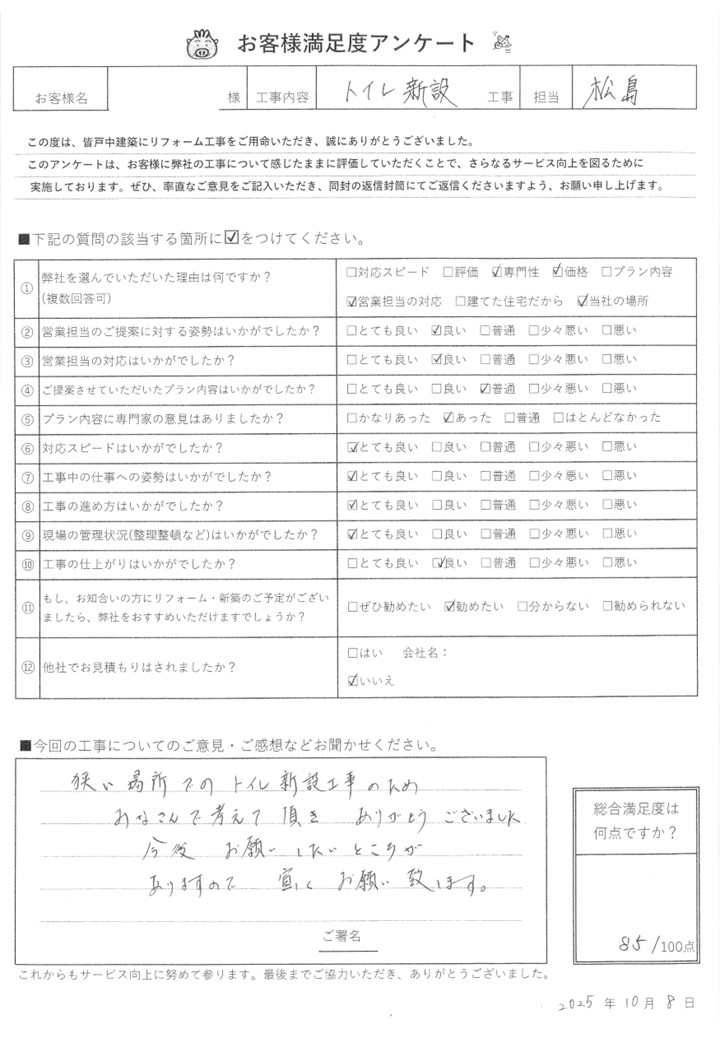 お客様満足度アンケート
お客様名 様 工事内容 トイレ新設 工事 担当 松島
この度は、皆戸中建築にリフォーム工事をご用命いただき、誠にありがとうございました。
このアンケートは、お客様に弊社の工事について感じたままに評価していただくことで、さらなるサービス向上を図るために
実施しております。ぜひ、率直なご意見をご記入いただき、同封の返信封筒にてご返信くださいますよう、お願い申し上げます。
■下記の質問の該当する箇所に☑をつけてください。
① 弊社を選んでいただいた理由は何ですか? □対応スピード □評価 ☑専門性 ☑価格 □プラン内容
(複数回答可) ☑営業担当の対応 □建てた住宅だから ☑当社の場所
② 営業担当のご提案に対する姿勢はいかがでしたか? □とても良い ☑良い □普通 □少々悪い □悪い
③ 営業担当の対応はいかがでしたか? □とても良い ☑良い □普通 □少々悪い □悪い
④ ご提案させていただいたプラン内容はいかがでしたか? □とても良い □良い ☑普通 □少々悪い □悪い
⑤ プラン内容に専門家の意見はありましたか? □かなりあった ☑あった □普通 □ほとんどなかった
⑥ 対応スピードはいかがでしたか? ☑とても良い □良い □普通 □少々悪い □悪い
⑦ 工事中の仕事への姿勢はいかがでしたか? ☑とても良い □良い □普通 □少々悪い □悪い
⑧ 工事の進め方はいかがでしたか? ☑とても良い □良い □普通 □少々悪い □悪い
⑨ 現場の管理状況(整理整頓など)はいかがでしたか? ☑とても良い □良い □普通 □少々悪い □悪い
⑩ 工事の仕上がりはいかがでしたか? □とても良い ☑良い □普通 □少々悪い □悪い
⑪ もし、お知合いの方にリフォーム・新築のご予定がござい
ましたら、弊社をおすすめいただけますでしょうか? □ぜひ勧めたい ☑勧めたい □分からない □勧められない
⑫ 他社でお見積もりはされましたか? □はい 会社名:
☑いいえ
■今回の工事についてのご意見・ご感想などお聞かせください。
狭い場所でのトイレ新設工事のため
みなさんで考えて頂き ありがとうございました
今後 お願いしたいところが
ありますので 宜しくお願い致します。
ご署名
総合満足度は
何点ですか?
85/100点
これからもサービス向上に努めて参ります。最後までご協力いただき、ありがとうございました。
2025年10月8日